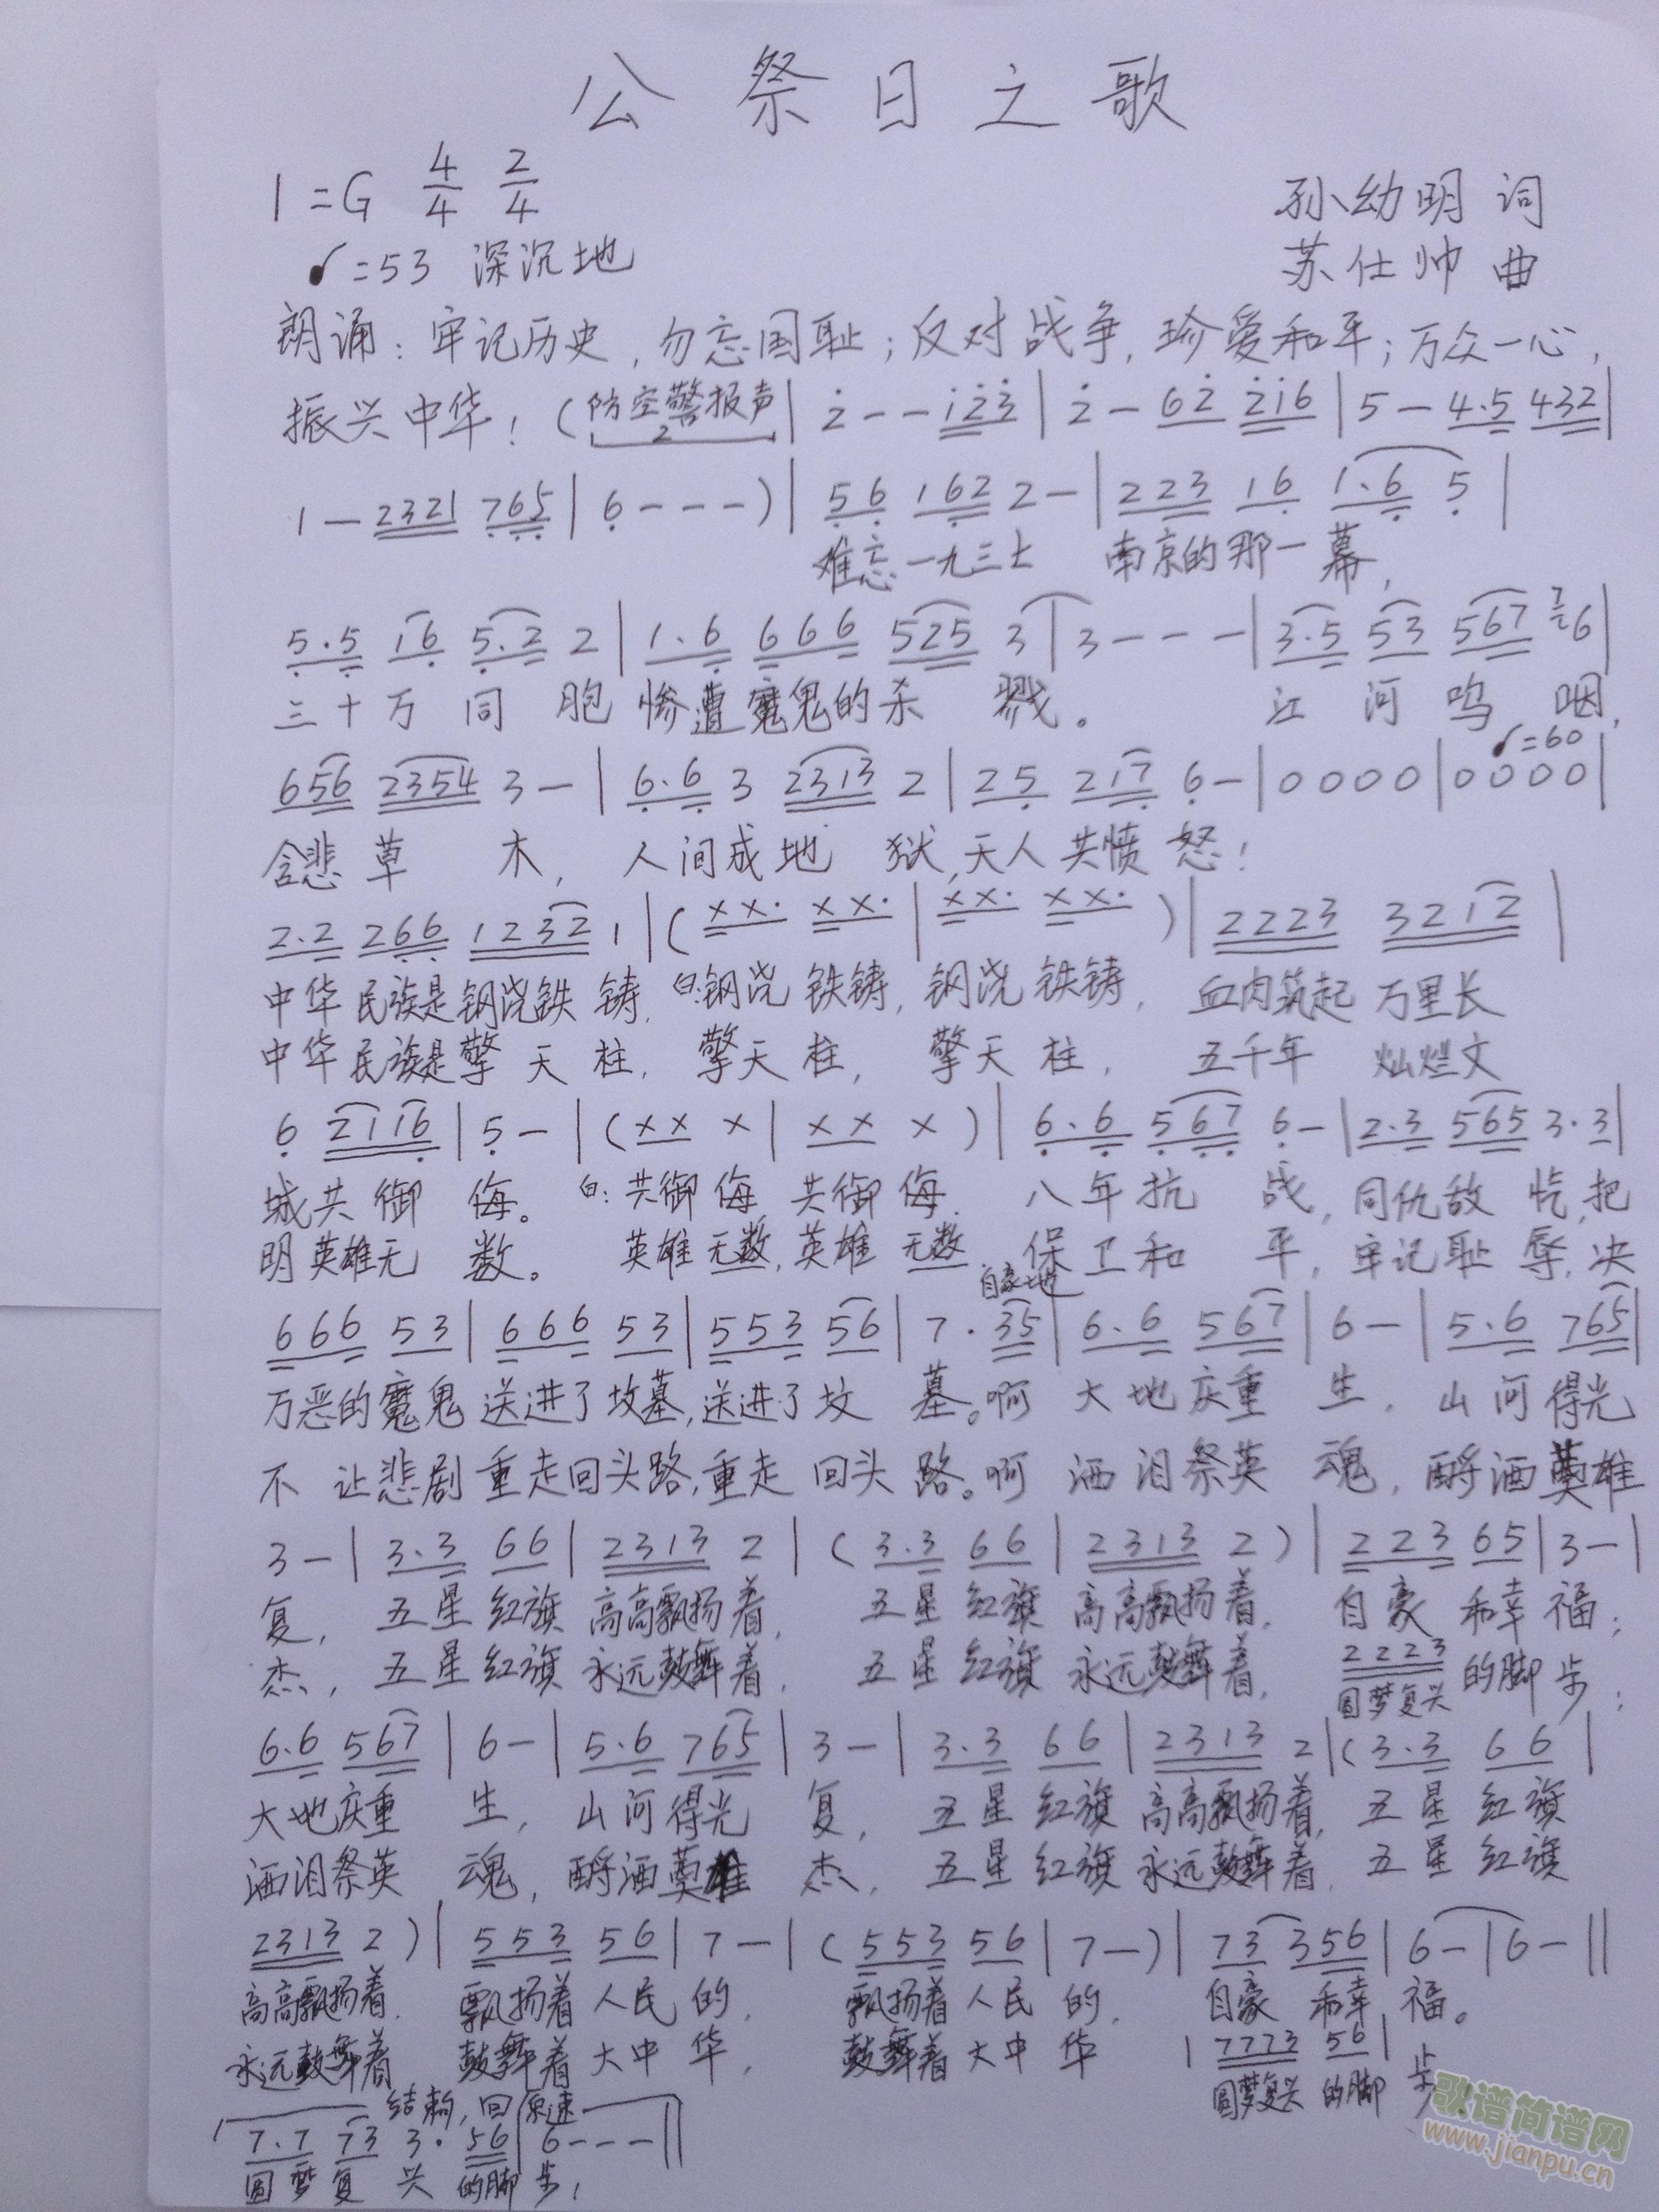 公祭日之歌
1=G 4/4 2/4
孙幼明 词
♩=53 深沉地
苏仕帅 曲
朗诵：牢记历史，勿忘国耻；反对战争，珍爱和平；万众一心，
振兴中华！（防空警报声 2 | 2 - - 1 2 3 | 2 - 6 2 2 1 6 | 5 - 4·5 4 3 2 |
1 - 2 3 2 1 7 6 5 | 6 - - - ) | 5 6 1 6 2 2 - | 2 2 3 1 6 1·6 5 |
难忘一九三七 南京的那一幕，
5·5 1 6 5·2 2 | 1·6 6 6 6 5 2 5 3 | 3 - - - | 3·5 5 3 5 6 7 7 6 |
三十万同胞惨遭魔鬼的杀戮。 江河呜咽，
♩=60
6 5 6 2 3 5 4 3 - | 6·6 3 2 3 1 3 2 | 2 5 2 1 7 6 - | 0 0 0 0 | 0 0 0 0 |
含悲草木，人间成地狱，天人共愤怒！
2·2 2 6 6 1 2 3 2 1 | ( X X· X X· | X X· X X· ) | 2 2 2 3 3 2 1 2 |
中华民族是钢浇铁铸，白：钢浇铁铸，钢浇铁铸，血肉筑起万里长
中华民族是擎天柱，擎天柱，擎天柱，五千年 灿烂文
6 2 1 1 6 | 5 - | ( X X X | X X X ) | 6·6 5 6 7 6 - | 2·3 5 6 5 3·3 |
城共御侮。白：共御侮，共御侮，八年抗战，同仇敌忾，把
明英雄无数。英雄无数，英雄无数，保卫和平，牢记耻辱，决
自豪地
6 6 6 5 3 | 6 6 6 5 3 | 5 5 3 5 6 | 7·3 5 | 6·6 5 6 7 | 6 - | 5·6 7 6 5 |
万恶的魔鬼送进了坟墓，送进了坟墓。啊大地庆重生，山河得光
不让悲剧重走回头路，重走回头路。啊洒泪祭英魂，酹酒英雄
3 - | 3·3 6 6 | 2 3 1 3 2 | ( 3·3 6 6 | 2 3 1 3 2 ) | 2 2 3 6 5 | 3 - |
复，五星红旗高高飘扬着，五星红旗高高飘扬着，自豪和幸福；
杰，五星红旗永远鼓舞着，五星红旗永远鼓舞着，2 2 2 3 的脚步；
圆梦复兴
6·6 5 6 7 | 6 - | 5·6 7 6 5 | 3 - | 3·3 6 6 | 2 3 1 3 2 | ( 3·3 6 6 |
大地庆重生，山河得光复，五星红旗高高飘扬着，五星红旗
洒泪祭英魂，酹酒英雄杰，五星红旗永远鼓舞着，五星红旗
2 3 1 3 2 ) | 5 5 3 5 6 | 7 - | ( 5 5 3 5 6 | 7 - ) | 7 3 3 5 6 | 6 - | 6 - ||
高高飘扬着，飘扬着人民的，飘扬着人民的，自豪和幸福。
永远鼓舞着 鼓舞着大中华，鼓舞着大中华 | 7 7 7 3 5 6 | 步
圆梦复兴的脚
结束，回原速
7·7 7 3 3·5 6 | 6 - - - ||
圆梦复兴的脚步！
歌谱简谱网
www.jianpu.cn